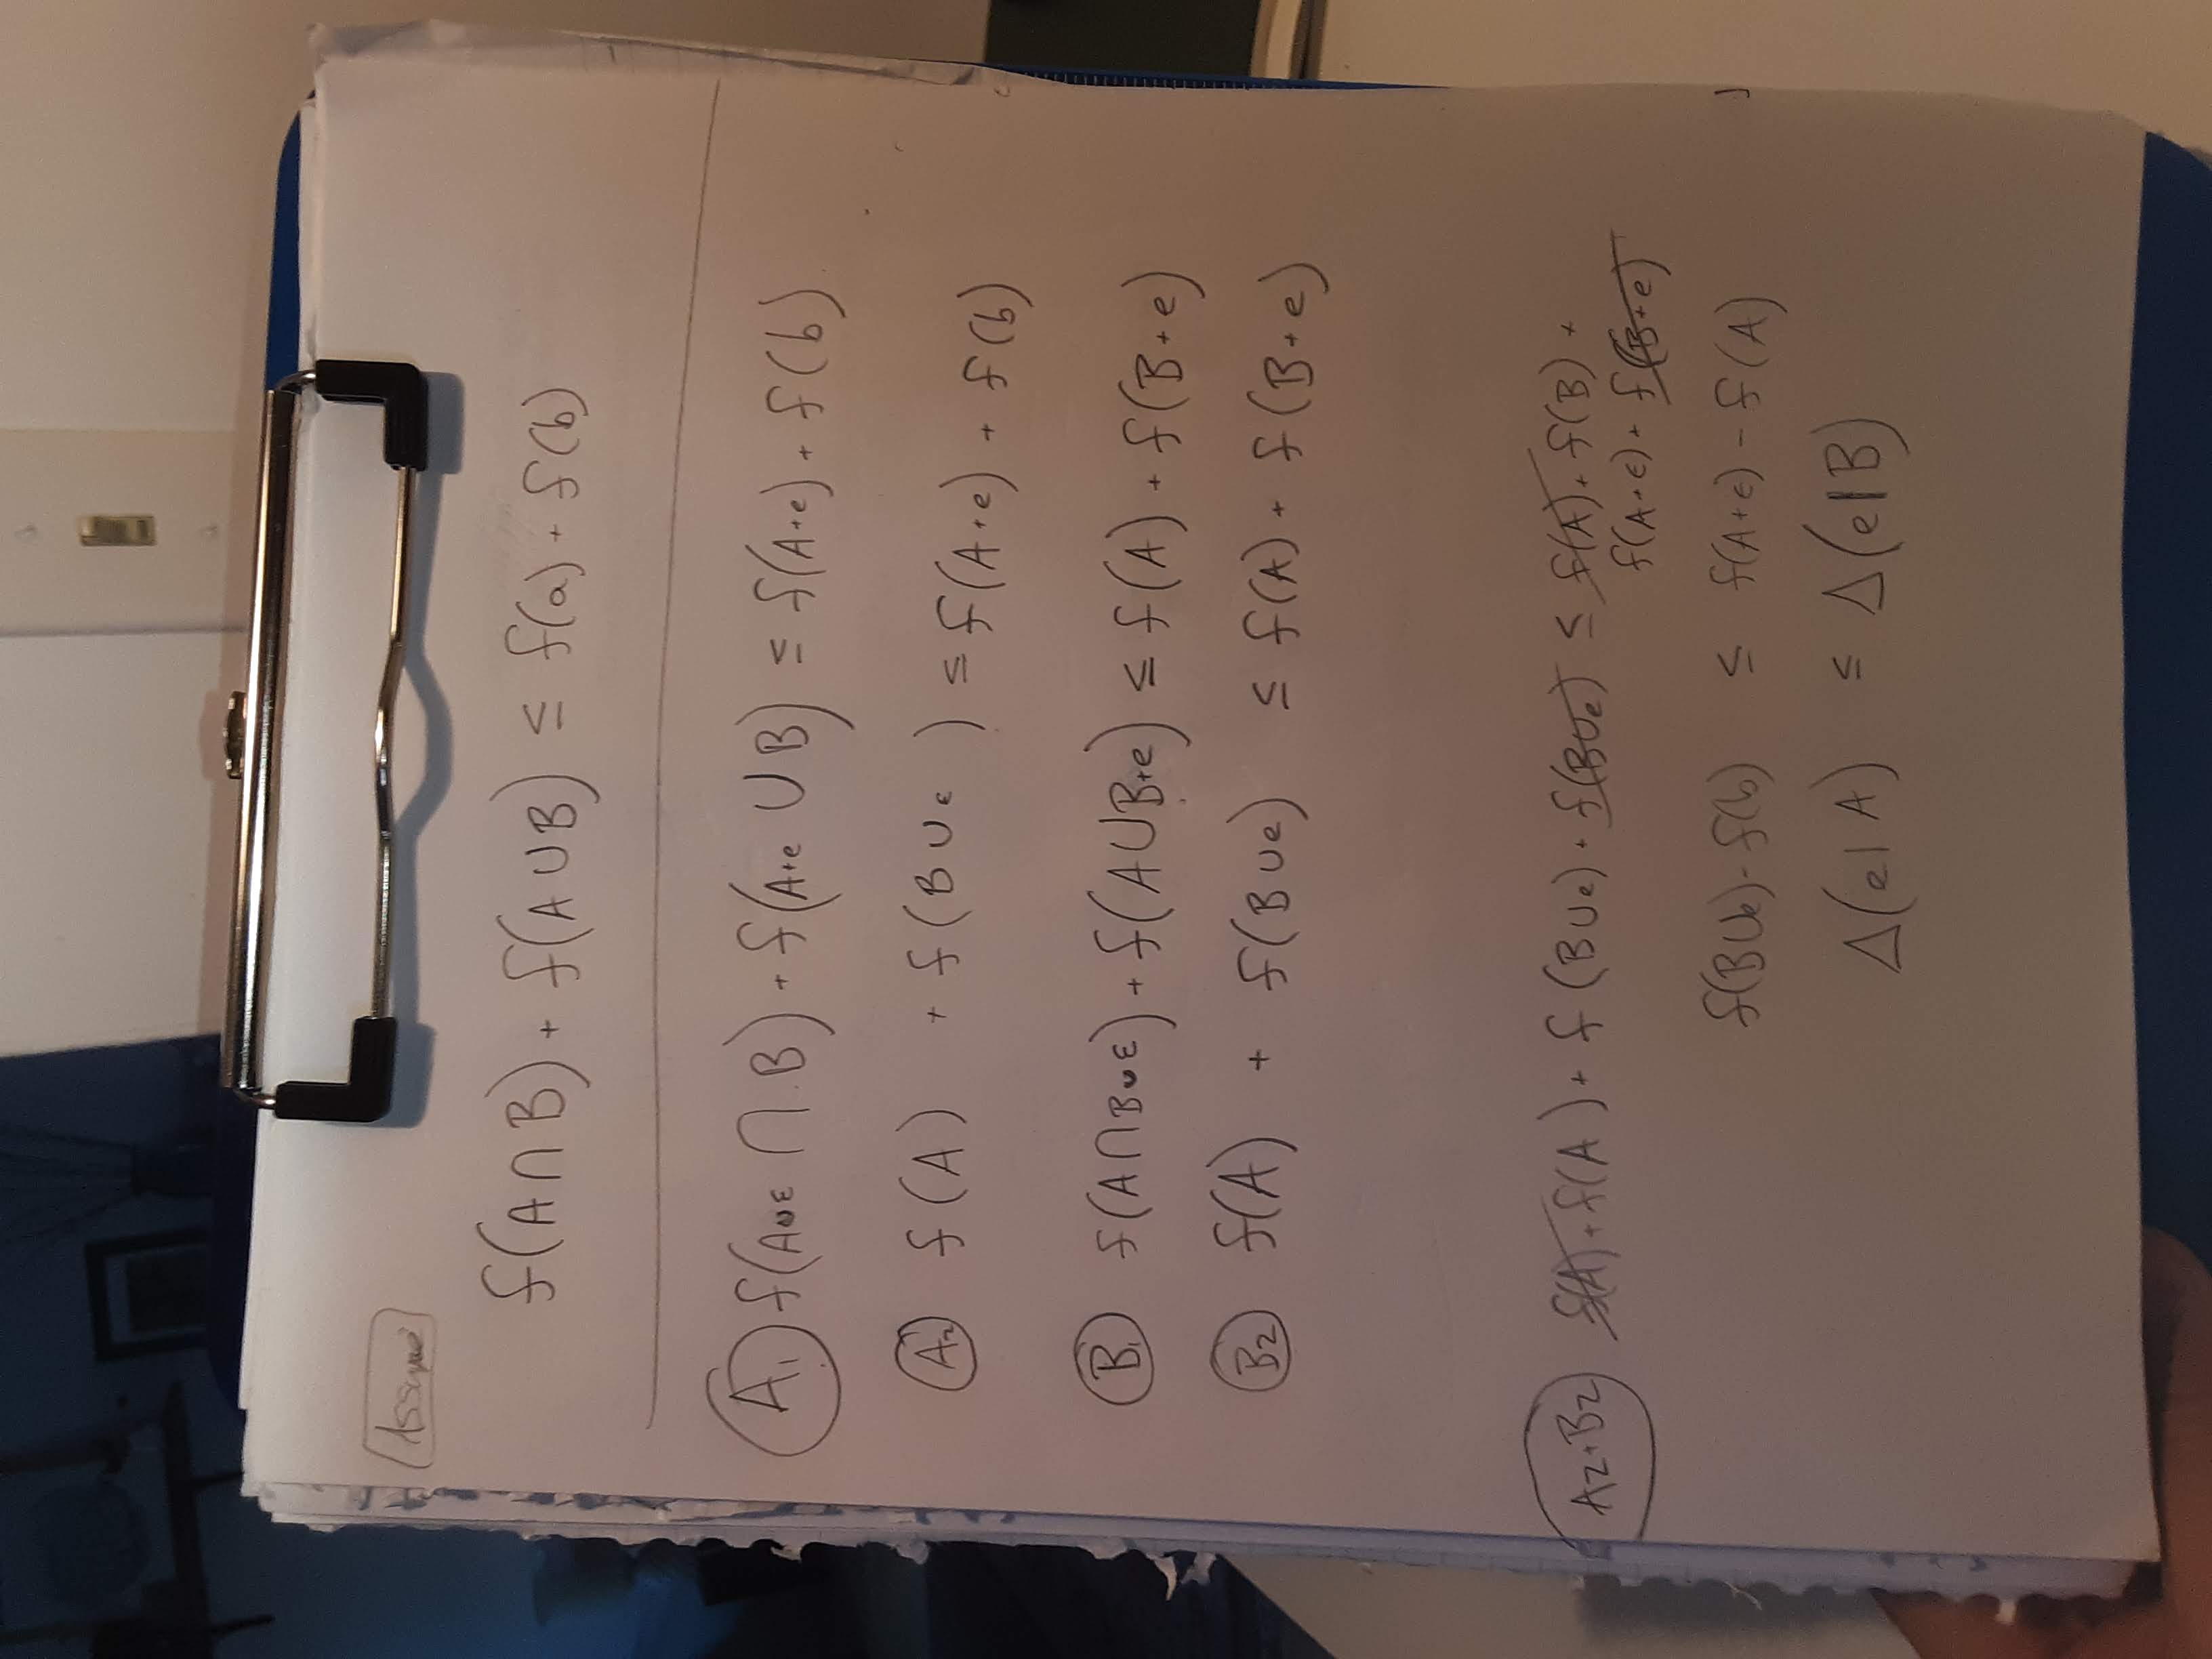 Assume
f(A ∩ B) + f(A ∪ B) ≤ f(a) + f(b)
A₁ f(A∪ε ∩ B) + f(A+e ∪ B) ≤ f(A+e) + f(b)
A₂ f(A) + f(B ∪ ε) ≤ f(A+e) + f(b)
B₁ f(A ∩ B∪ε) + f(A ∪ B+e) ≤ f(A) + f(B+e)
B2 f(A) + f(B ∪ e) ≤ f(A) + f(B+e)
A2+B2 f(A) + f(A) + f(B ∪ e) + f(B ∪ e) ≤ f(A) + f(B) +
f(A+ϵ) + f(B+e)
f(B ∪ e) - f(b) ≤ f(A+ϵ) - f(A)
Δ(e|A) ≤ Δ(e|B)